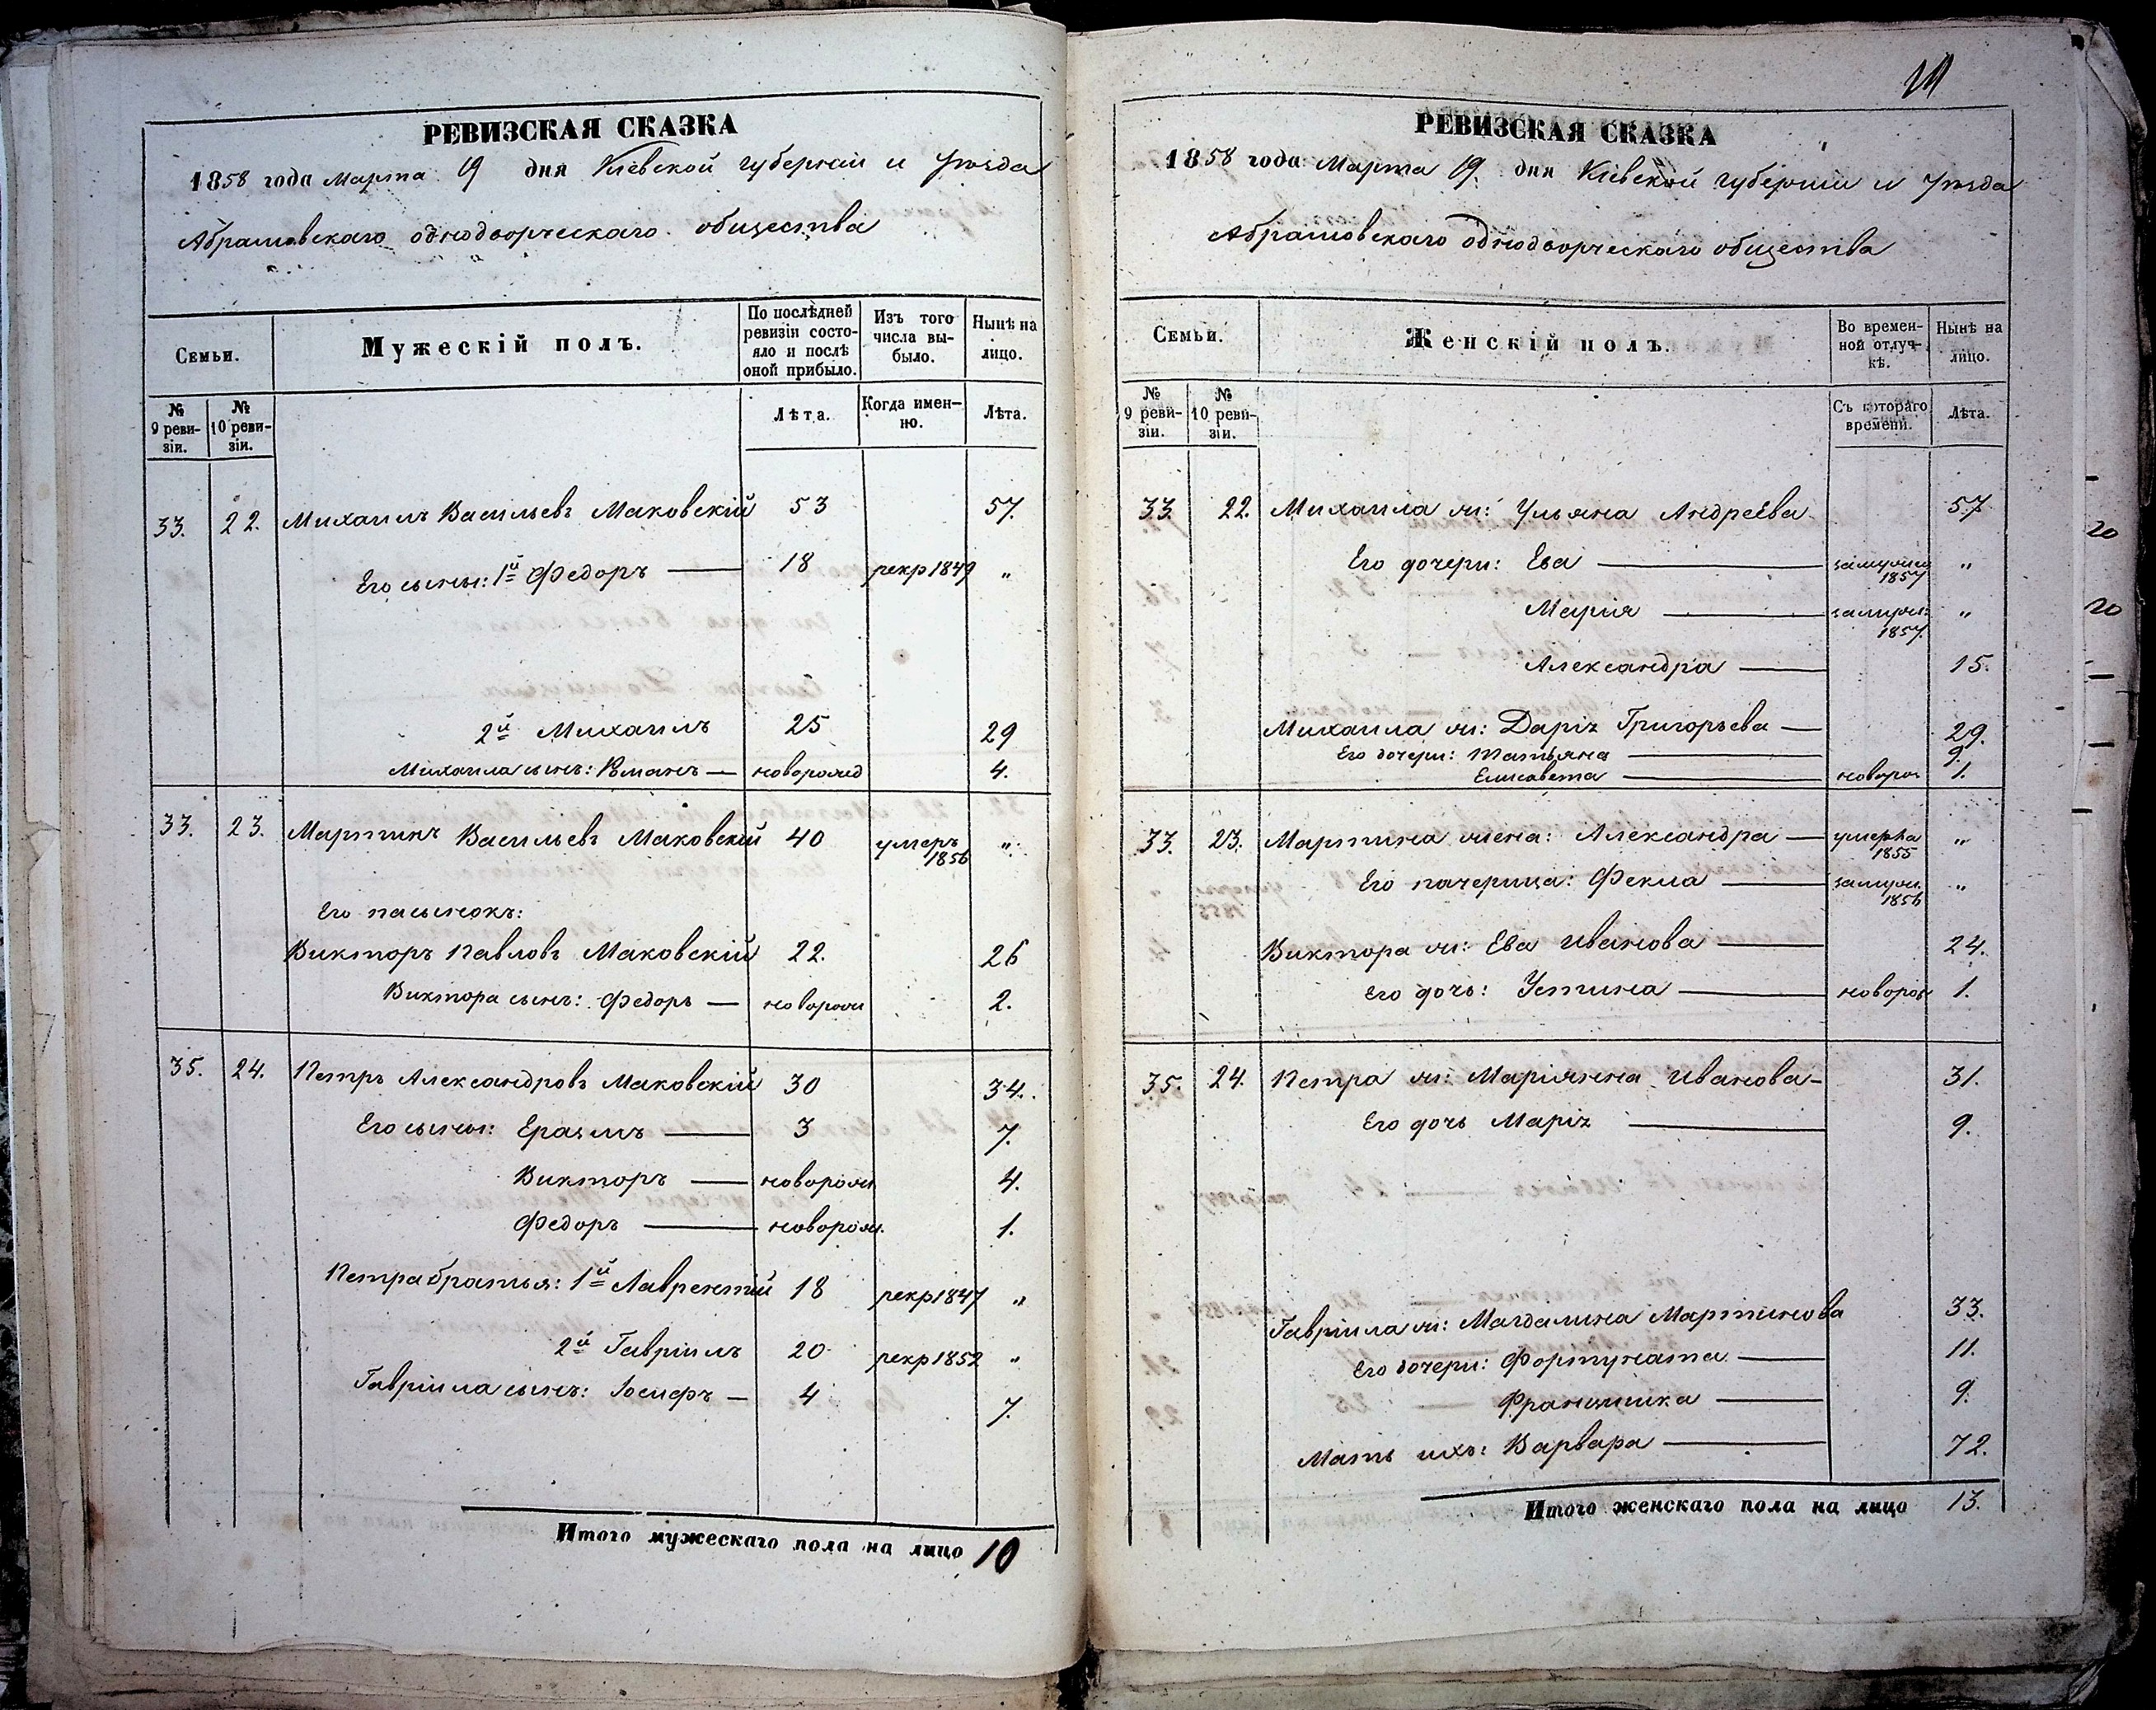 РЕВИЗСКАЯ СКАЗКА
1858 года Марта 19 дня Кіевской губерніи и уѣзда
Абрамовскаго однодворческаго общества
Семьи.
Мужескій полъ.
По послѣдней ревизіи состояло и послѣ оной прибыло.
Изъ того числа выбыло.
Нынѣ на лицо.
№ 9 ревизіи.
№ 10 ревизіи.
Лѣта.
Когда именно.
Лѣта.
33. 22. Михаилъ Васильевъ Маковскій 53 57.
Его сыны: 1й Федоръ 18 рекр 1849 "
2й Михаилъ 25 29
Михаила сынъ: Романъ новорожд 4.
33. 23. Мартинъ Васильевъ Маковскій 40 умеръ 1856 "
Его пасынокъ:
Викторъ Павловъ Маковскій 22. 26
Виктора сынъ: Федоръ новорож 2.
35. 24. Петръ Александровъ Маковскій 30 34.
Его сыны: Еразмъ 3 7.
Викторъ новорож 4.
Федоръ новорож. 1.
Петра братья: 1й Лаврентій 18 рекр 1847 "
2й Гавріилъ 20 рекр 1852 "
Гавріила сынъ: Іосифъ 4 7.
Итого мужескаго пола на лицо 10
РЕВИЗСКАЯ СКАЗКА
1858 года Марта 19 дня Кіевской губерніи и уѣзда
Абрамовскаго однодворческаго общества
Семьи.
Женскій полъ.
Во временной отлучкѣ.
Нынѣ на лицо.
№ 9 ревизіи.
№ 10 ревизіи.
Съ котораго времени.
Лѣта.
33. 22. Михаила ж: Ульяна Андреева 57
Его дочери: Ева замужем 1857 "
Марія замуж: 1857. "
Александра 15.
Михаила ж: Дарія Григорьева 29.
Его дочери: Татьяна 9.
Елисавета новорож 1.
33. 23. Мартина жена: Александра умерла 1855 "
Его пачерица: Фекла замуж. 1856 "
Виктора ж: Ева Иванова 24.
Его дочь: Устина новорож 1.
35. 24. Петра ж: Маріянна Иванова 31.
Его дочь Марія 9.
Гавріила ж: Магдалина Мартинова 33.
Его дочери: Фортуната 11.
Францишка 9.
Мать ихъ: Варвара 72.
Итого женскаго пола на лицо 13.
20
20